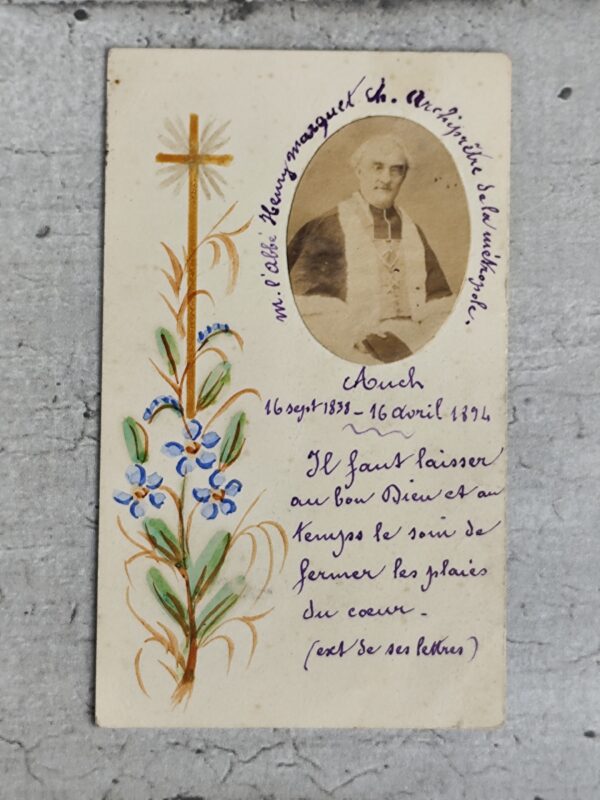 m. l'abbé Henry marquet ch. Archiprêtre de la métropole.
Auch
16 sept 1838 - 16 avril 1894
Il faut laisser
au bon Dieu et au
temps le soin de
fermer les plaies
du cœur -
(ext de ses lettres)